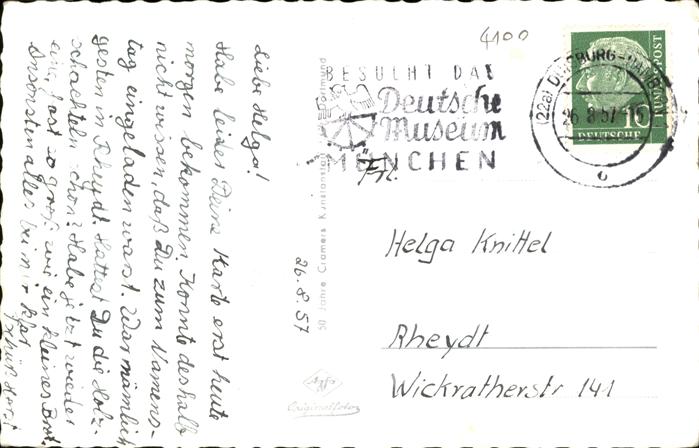 4100
BESUCHT DAS
Deutsche
Museum
MÜNCHEN
(22a) DUISBURG-HAMBORN
26.8.57-16
10
DEUTSCHE
BUNDESPOST
Liebe Helga!
Habe leider Deine Karte erst heute
morgen bekommen. Konnte deshalb
nicht wissen, daß Du zum Namens-
tag eingeladen warst. War nämlich
gestern in Rheydt. Hattest Du die Holz-
schachteln schon? Habe jetzt wieder
eine, fast so groß wie ein kleines Brot.
Ansonsten alles bei mir
Gruß Horst
26.8.57
50 Jahre Cramers Kunstanstalt Dortmund
Agfa
Originalfoto
Frl.
Helga Knittel
Rheydt
Wickratherstr 141